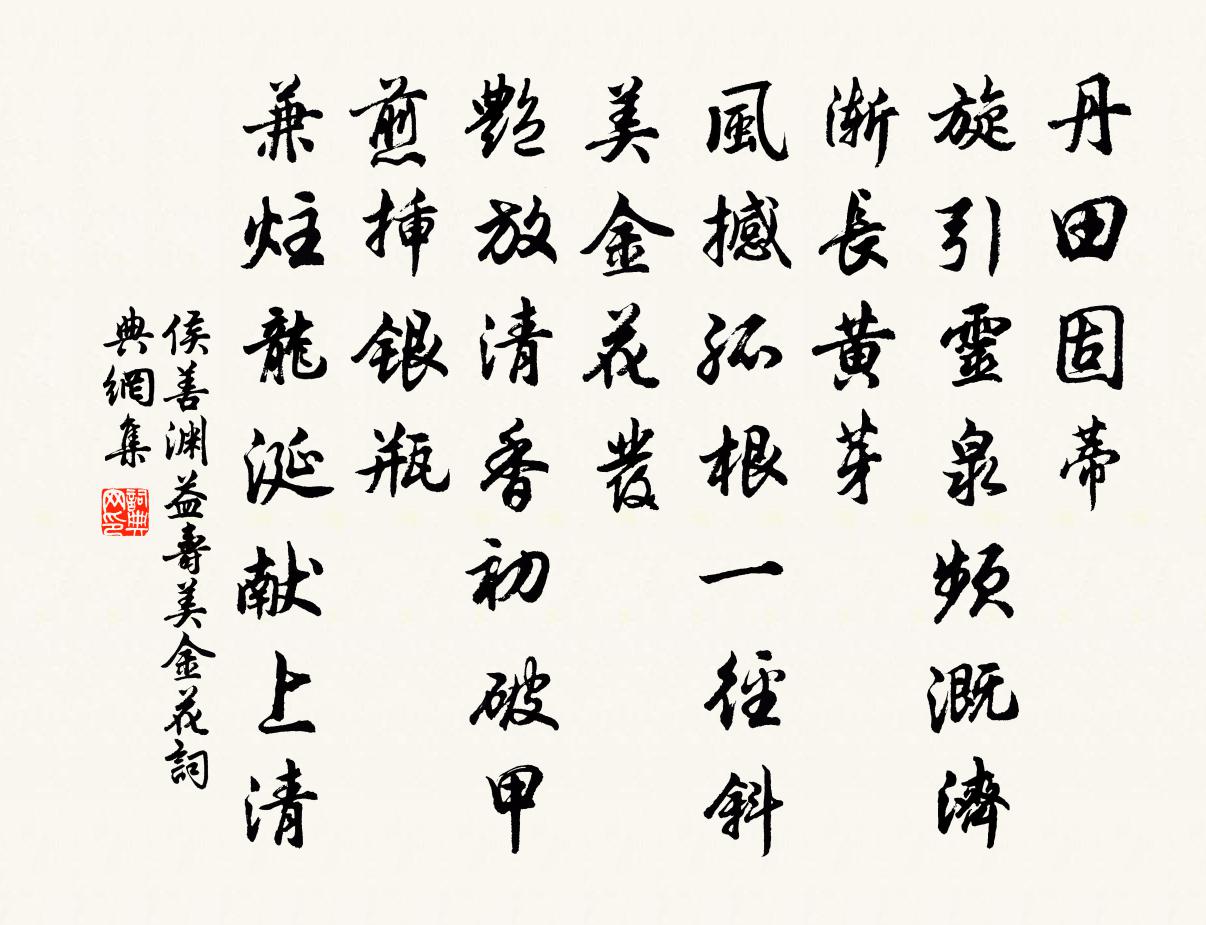 丹田固蒂
旋引靈泉頻溉濟
漸長黃芽
風撼孤根一徑斜
美金花發
艷放清香初破甲
煎揷銀瓶
兼炷龍涎献上清
侯善渊益壽美金花詞
典網集
詞典网印